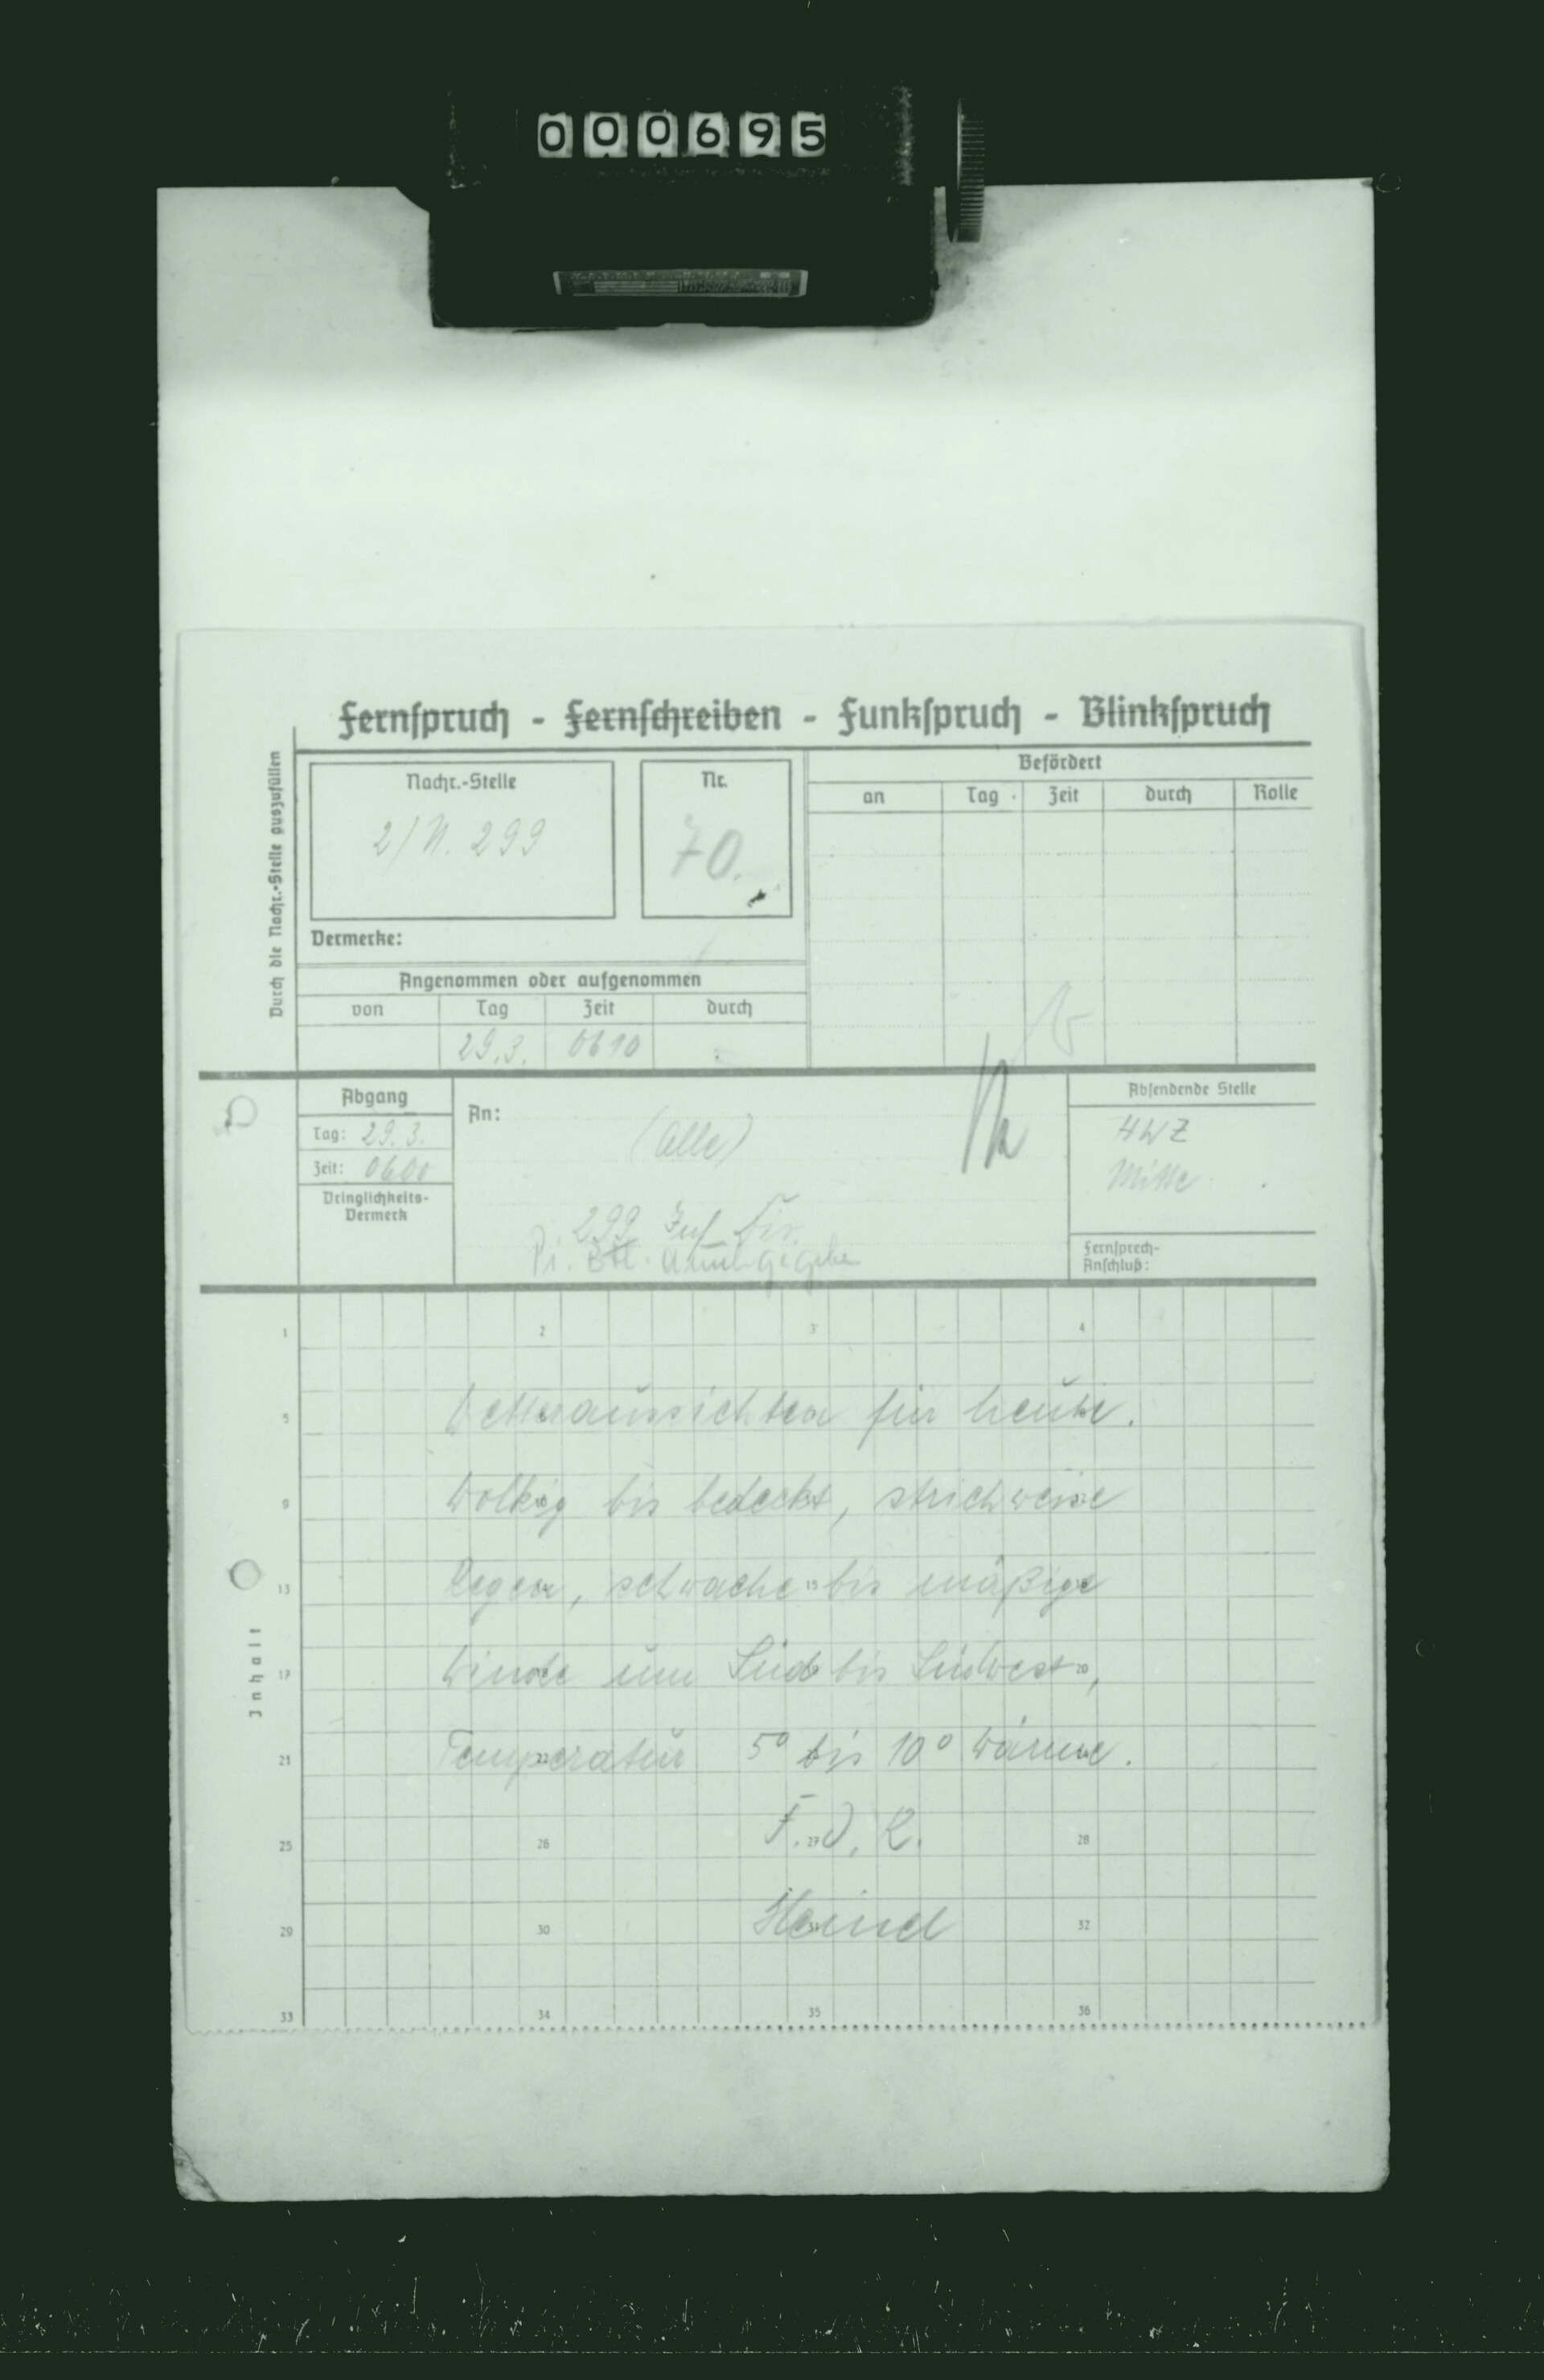 000695
Fernspruch - Fernschreiben - Funkspruch - Blinkspruch
Durch die Nachr.-Stelle auszufüllen
Nachr.-Stelle
2/N. 299
Nr.
70.
Befördert
an Tag Zeit durch Rolle
Vermerke:
Angenommen oder aufgenommen
von Tag Zeit durch
29.3. 0610
Abgang
Tag: 29.3.
Zeit: 0600
Dringlichkeits-
Vermerk
An:
(alle)
299 Inf. Div.
Pi. Btl.
Absendende Stelle
HWZ
Mitte
Fernsprech-
Anschluß:
Inhalt
1 2 3 4
5
Wetteraussichten für heute.
9
Wolkig bis bedeckt, strichweise
13 15
Regen, schwache bis mäßige
17 20
Winde um Süd bis Südwest,
21 22
Temperatur 5° bis 10° Wärme.
F. d. R.
25 26 27 28
Heinel
29 30 31 32
33 34 35 36